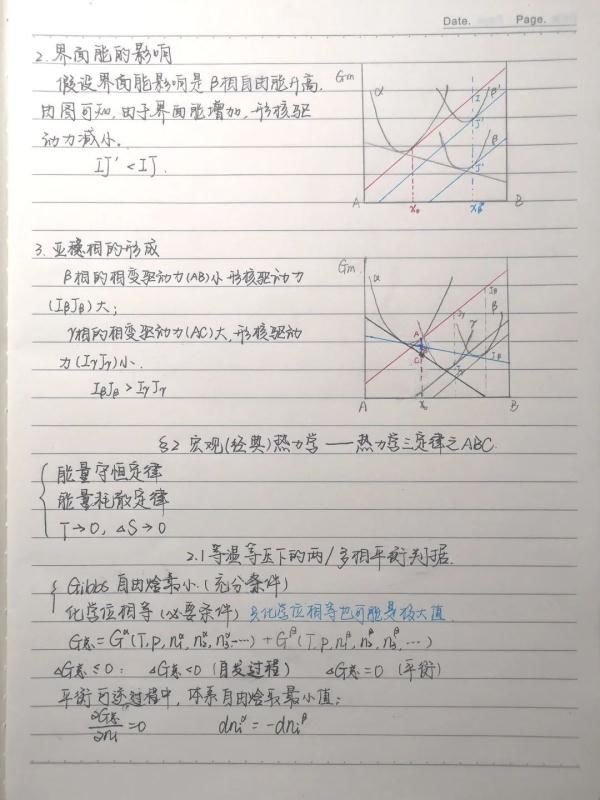 Date.    Page.
2. 界面能的影响
假设界面能影响是β相自由能升高,
由图可知,由于界面能增加,形核驱
动力减小。
IJ' < IJ.
Gm
α
I
J'
β'
β
J'
A
x₀
B
3. 亚稳相的形成
β相的相变驱动力(AB)小 形核驱动力
(IβJβ)大;
γ相的相变驱动力(AC)大,形核驱动
力(IγJγ)小.
IβJβ > IγJγ
Gm
α
Iβ
β
Iγ
γ
A
C
Jβ
Jγ
A
x₀
B
§2 宏观(经典)热力学——热力学三定律之ABC.
能量守恒定律
能量耗散定律
T→0, △S→0
2.1 等温等压下的两/多相平衡判据.
Gibbs 自由焓最小.(充分条件)
化学位相等 (必要条件) 化学位相等也可能是极大值
G总=G^α(T,p,n₁^α,n₂^α,n₃^α,…)+G^β(T,p,n₁^β,n₂^β,n₃^β,…)
△G总≤0: △G总<0 (自发过程) △G总=0 (平衡)
平衡可逆过程中,体系自由焓取最小值:
∂G总/∂nᵢ=0    dnᵢ^α=-dnᵢ^β